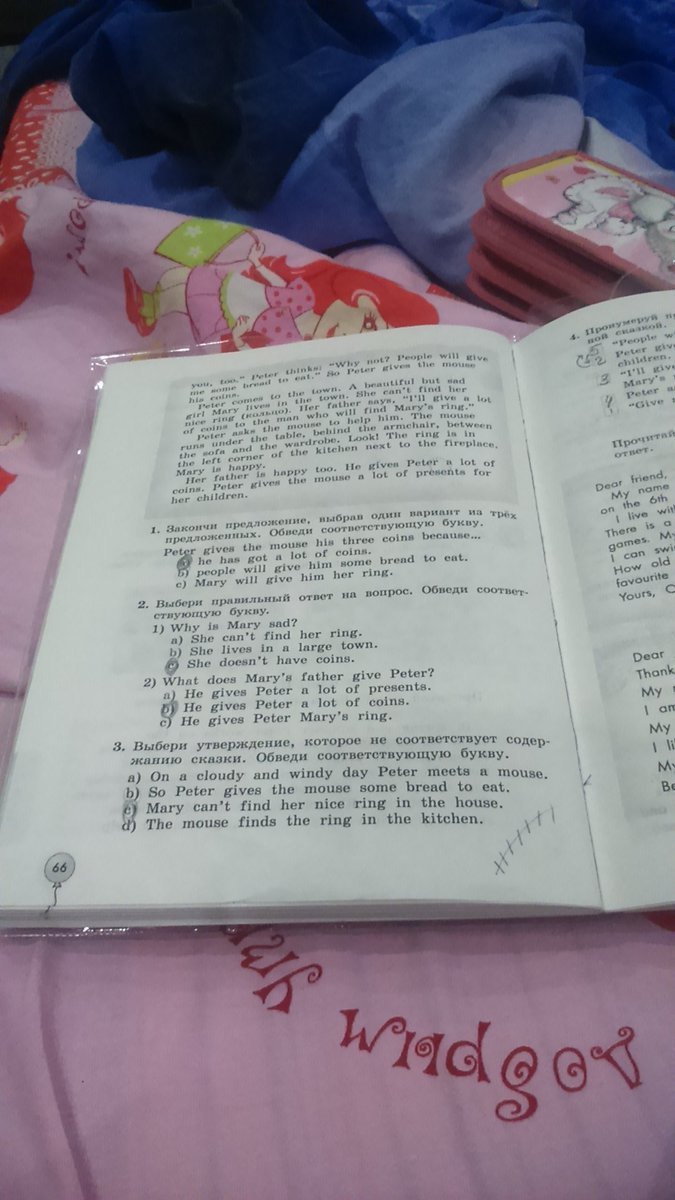 you, too." Peter thinks: "Why not? People will give
me some bread to eat." So Peter gives the mouse
his coins.
Peter comes to the town. A beautiful but sad
girl Mary lives in the town. She can't find her
nice ring (кольцо). Her father says, "I'll give a lot
of coins to the man who will find Mary's ring."
Peter asks the mouse to help him. The mouse
runs under the table, behind the armchair, between
the sofa and the wardrobe. Look! The ring is in
the left corner of the kitchen next to the fireplace.
Mary is happy.
Her father is happy too. He gives Peter a lot of
coins. Peter gives the mouse a lot of presents for
her children.
1. Закончи предложение, выбрав один вариант из трёх
предложенных. Обведи соответствующую букву.
Peter gives the mouse his three coins because...
a) he has got a lot of coins.
b) people will give him some bread to eat.
c) Mary will give him her ring.
2. Выбери правильный ответ на вопрос. Обведи соответ-
ствующую букву.
1) Why is Mary sad?
a) She can't find her ring.
b) She lives in a large town.
c) She doesn't have coins.
2) What does Mary's father give Peter?
a) He gives Peter a lot of presents.
b) He gives Peter a lot of coins.
c) He gives Peter Mary's ring.
3. Выбери утверждение, которое не соответствует содер-
жанию сказки. Обведи соответствующую букву.
a) On a cloudy and windy day Peter meets a mouse.
b) So Peter gives the mouse some bread to eat.
c) Mary can't find her nice ring in the house.
d) The mouse finds the ring in the kitchen.
66
4. Пронумеруй
ной сказкой.
"People
Peter
children.
3 "I'll
Mary's
Peter
"Give
Прочитай
ответ.
Dear friend,
My name
on the 6th
I live
There is a
games.
I can
How old
favourite
Yours,
Dear
Thank
My
I am
My
I